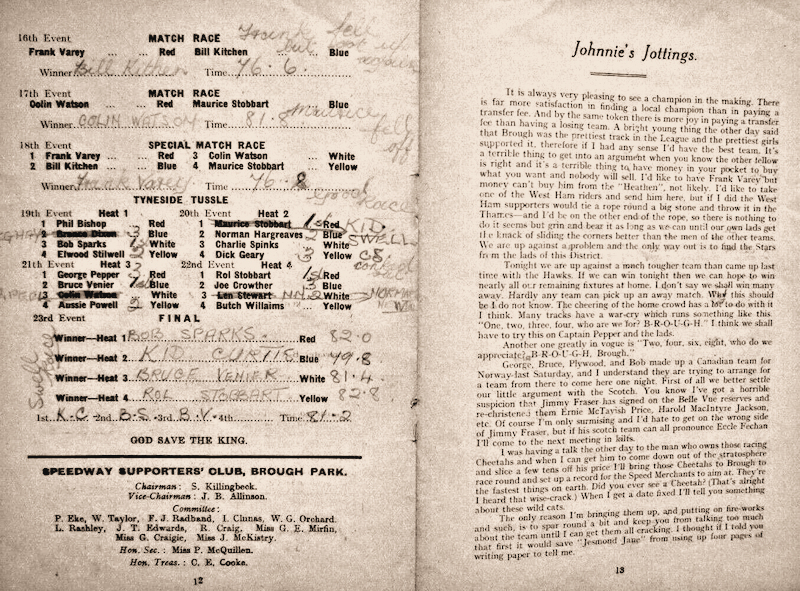 16th Event MATCH RACE
Frank Varey ... ... Red Bill Kitchen ... ... Blue
Winner Bill Kitchen Time 76.6
17th Event MATCH RACE
Colin Watson ... Red Maurice Stobbart Blue
Winner COLIN WATSON Time 81.8
18th Event SPECIAL MATCH RACE
1 Frank Varey ... Red 3 Colin Watson ... White
2 Bill Kitchen ... Blue 4 Maurice Stobbart Yellow
Winner Frank Varey Time 76.8
Good Race
TYNESIDE TUSSLE
19th Event Heat 1 20th Event Heat 2
1 Phil Bishop Red 1 Maurice Stobbart 1st Red KID
2 Bronco Dixon 3 Blue 2 Norman Hargreaves 2 Blue
3 Bob Sparks 1st White 3 Charlie Spinks White
4 Elwood Stilwell 2 Yellow 4 Dick Geary 3 Yellow
21st Event Heat 3 22nd Event Heat 4
1 George Pepper 2 Red 1 Rol Stobbart 1st Red
2 Bruce Venier 1st Blue 2 Joe Crowther 3 Blue
3 Colin Watson White 3 Len Stewart White
4 Aussie Powell 3 Yellow 4 Butch Willaims Yellow
23rd Event FINAL
Winner—Heat 1 BOB SPARKS. Red 82.0
Winner—Heat 2 KID CURTIS Blue 79.8
Winner—Heat 3 BRUCE VENIER White 81.4
Winner—Heat 4 ROL STOBBART Yellow 82.8
1st K.C. 2nd B.S. 3rd B.V. 4th Time 81.2
GOD SAVE THE KING.
SPEEDWAY SUPPORTERS' CLUB, BROUGH PARK.
Chairman: S. Killingbeck.
Vice-Chairman: J. B. Allinson.
Committee:
P. Eke, W. Taylor, F. J. Radband, I. Clunas, W. G. Orchard.
L. Rashley, J. T. Edwards, R. Craig, Miss G. E. Mirfin,
Miss G. Craigie, Miss J. McKistry.
Hon. Sec.: Miss P. McQuillen.
Hon. Treas.: C. E. Cooke.
12
Johnnie's Jottings.
It is always very pleasing to see a champion in the making. There
is far more satisfaction in finding a local champion than in paying a
transfer fee. And by the same token there is more joy in paying a transfer
fee than having a losing team. A bright young thing the other day said
that Brough was the prettiest track in the League and the prettiest girls
supported it, therefore if I had any sense I'd have the best team. It's
a terrible thing to get into an argument when you know the other fellow
is right and it's a terrible thing to have money in your pocket to buy
what you want and nobody will sell. I'd like to have Frank Varey but
money can't buy him from the "Heathen", not likely. I'd like to take
one of the West Ham riders and send him here, but if I did the West
Ham supporters would tie a rope round a big stone and throw it in the
Thames—and I'd be on the other end of the rope, so there is nothing to
do it seems but grin and bear it as long as we can until our own lads get
the knack of sliding the corners better than the men of the other teams.
We are up against a problem and the only way out is to find the Stars
from the lads of this District.
Tonight we are up against a much tougher team than came up last
time with the Hawks. If we can win tonight then we can hope to win
nearly all our remaining fixtures at home. I don't say we shall win many
away. Hardly any team can pick up an away match. Why this should
be I do not know. The cheering of the home crowd has a lot to do with it
I think. Many tracks have a war-cry which runs something like this.
"One, two, three, four, who are we for? B-R-O-U-G-H." I think we shall
have to try this on Captain Pepper and the lads.
Another one greatly in vogue is "Two, four, six, eight, who do we
appreciate? B-R-O-U-G-H, Brough."
George, Bruce, Plywood, and Bob made up a Canadian team for
Norway last Saturday, and I understand they are trying to arrange for
a team from there to come here one night. First of all we better settle
our little argument with the Scotch. You know I've got a horrible
suspicion that Jimmy Fraser has signed on the Belle Vue reserves and
re-christened them Ernie McTavish Price, Harold MacIntyre Jackson,
etc. Of course I'm only surmising and I'd hate to get on the wrong side
of Jimmy Fraser, but if his scotch team can all pronounce Eccle Fechan
I'll come to the next meeting in kilts.
I was having a talk the other day to the man who owns those racing
Cheetahs and when I can get him to come down out of the stratosphere
and slice a few tens off his price I'll bring those Cheetahs to Brough to
race round and set up a record for the Speed Merchants to aim at. They're
the fastest things on earth. Did you ever see a Cheetah? (That's alright
I heard that wise-crack.) When I get a date fixed I'll tell you something
about these wild cats.
The only reason I'm bringing them up, and putting on fire-works
and such, is to spar round a bit and keep you from talking too much
about the team until I can get them all cracking. I thought if I told you
that first it would save "Jesmond Jane" from using up four pages of
writing paper to tell me.
13